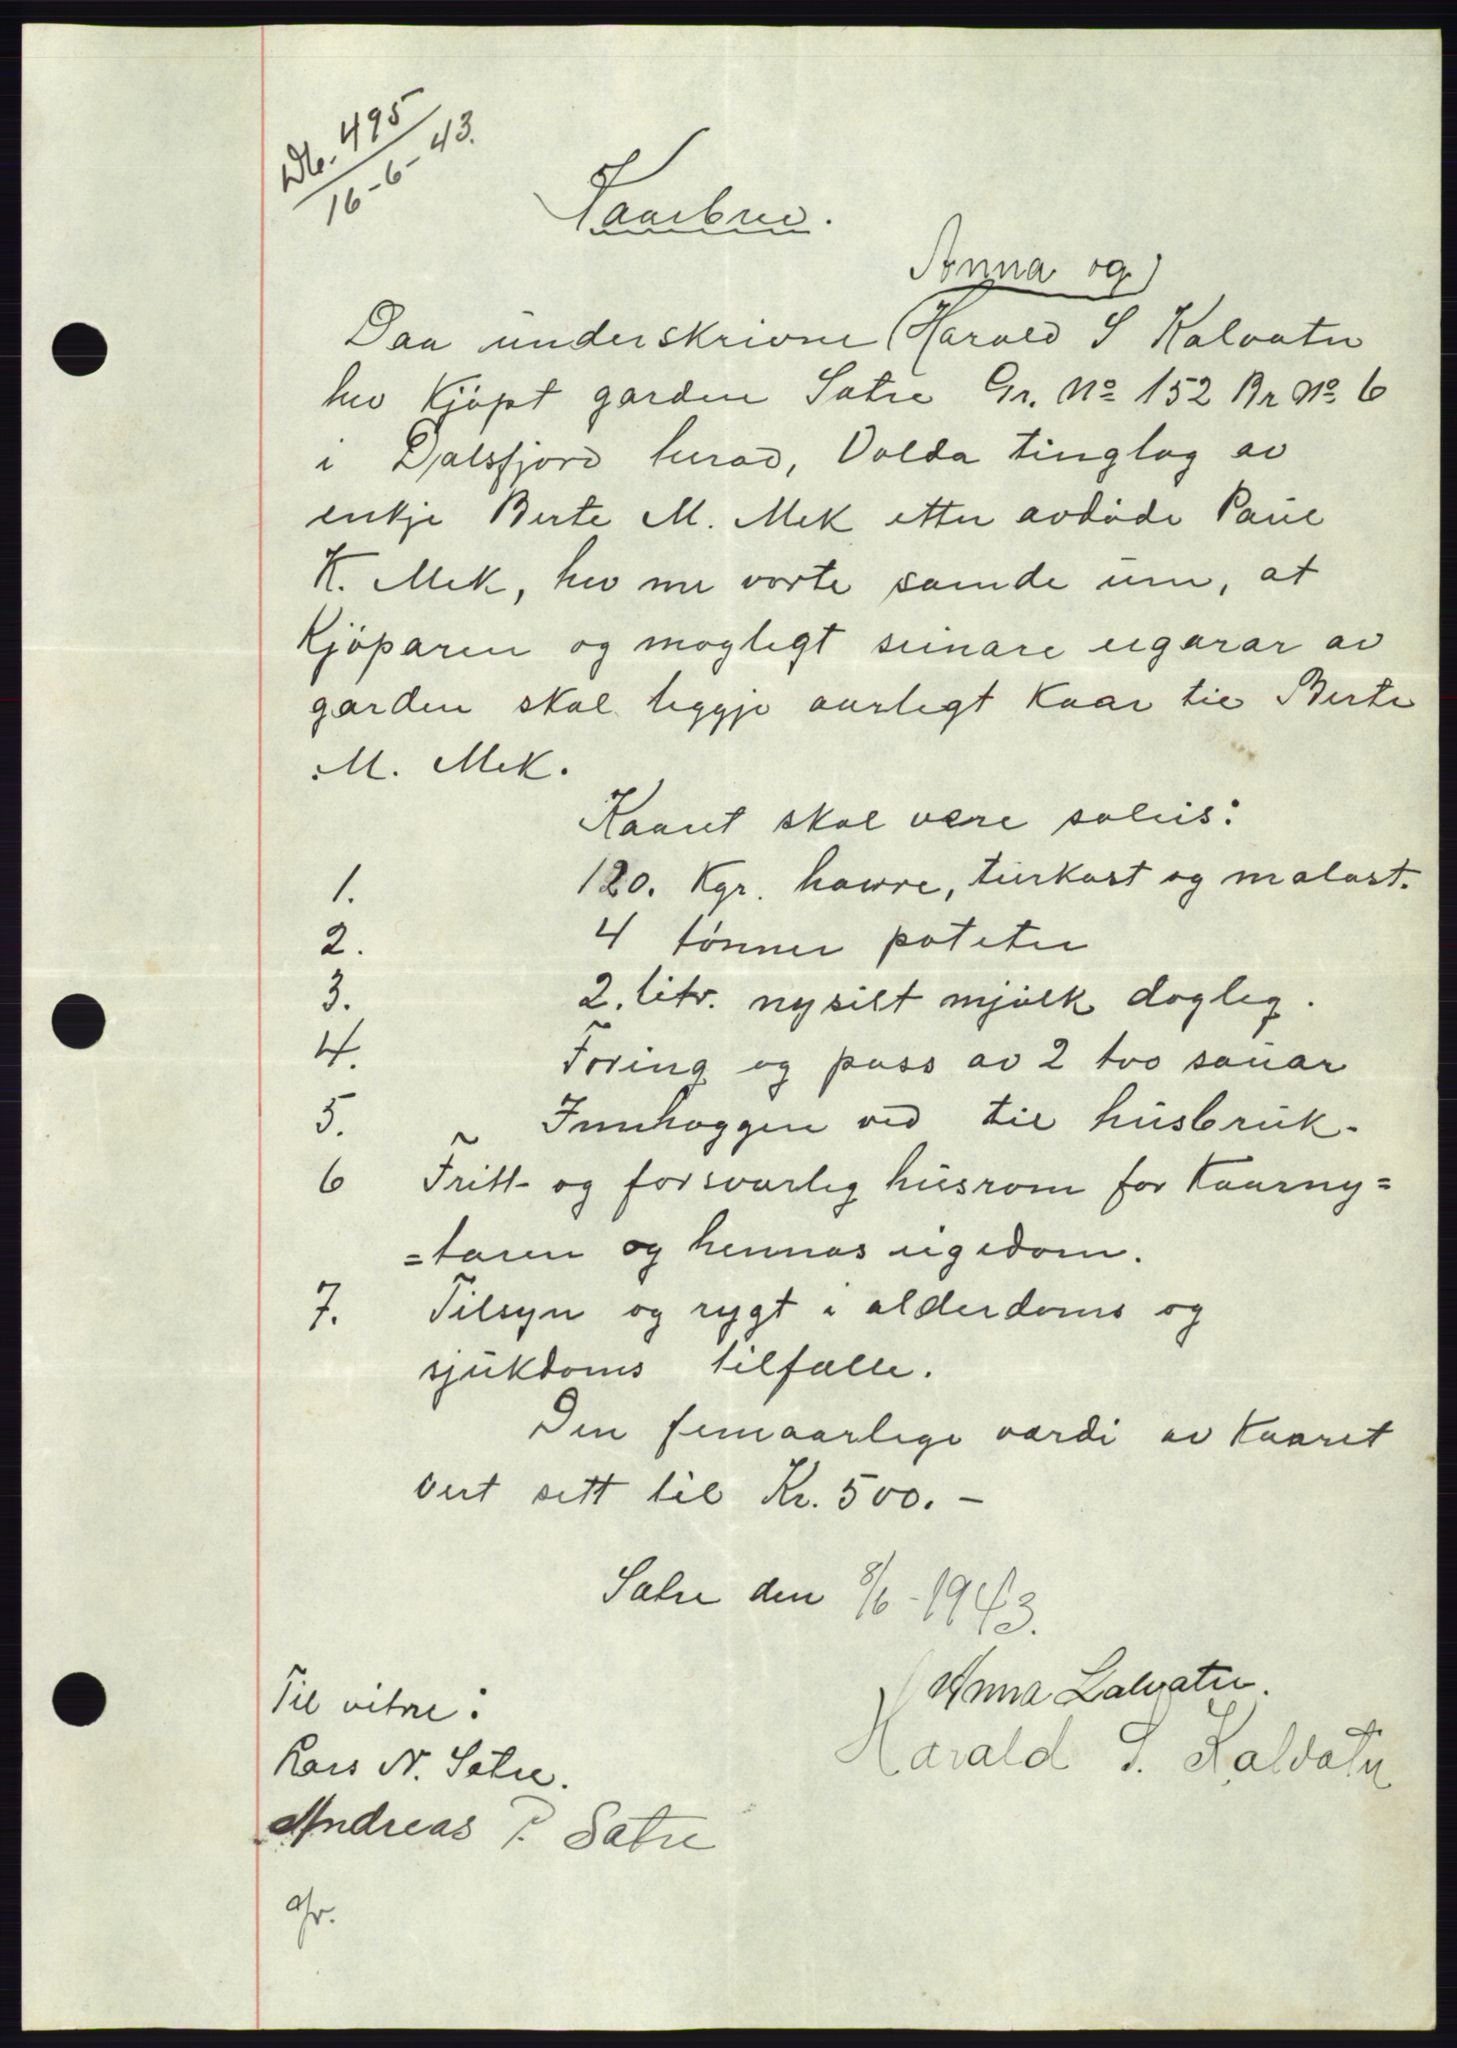 Db. 495
16-6-43.
Kaarbrev.
Anna og
Daa underskrivne Harald S Kalvatn
hev kjöpt garden Satre Gr. No 152 Br No 6
i Dalsfjord herad, Volda tinglag av
enkje Berte M. Mek etter avdöde Paul
K. Mek, hev me vorte samde um, at
kjöparen og moglegt seinare eigarar av
garden skal leggje aarlegt kaar til Berte
M. Mek.
Kaaret skal være soleis:
1. 120. Kgr. havre, turkast og malast.
2. 4 tönner poteter
3. 2. litr. nysilt mjölk dagleg.
4. Foring og pass av 2 tvo sauar
5. Innhoggen ved til husbruk.
6 Fritt- og forsvarleg husrom for kaarny=
=taren og hennas eigedom.
7. Tilsyn og rygt i alderdoms og
sjukdoms tilfælle.
Den femaarlege værdi av kaaret
vert sett til Kr. 500.-
Satre den 8/6-1943.
Til vitne:
Anna Kalvatn.
Harald S. Kalvatn
Lars N. Satre.
Andreas P. Satre